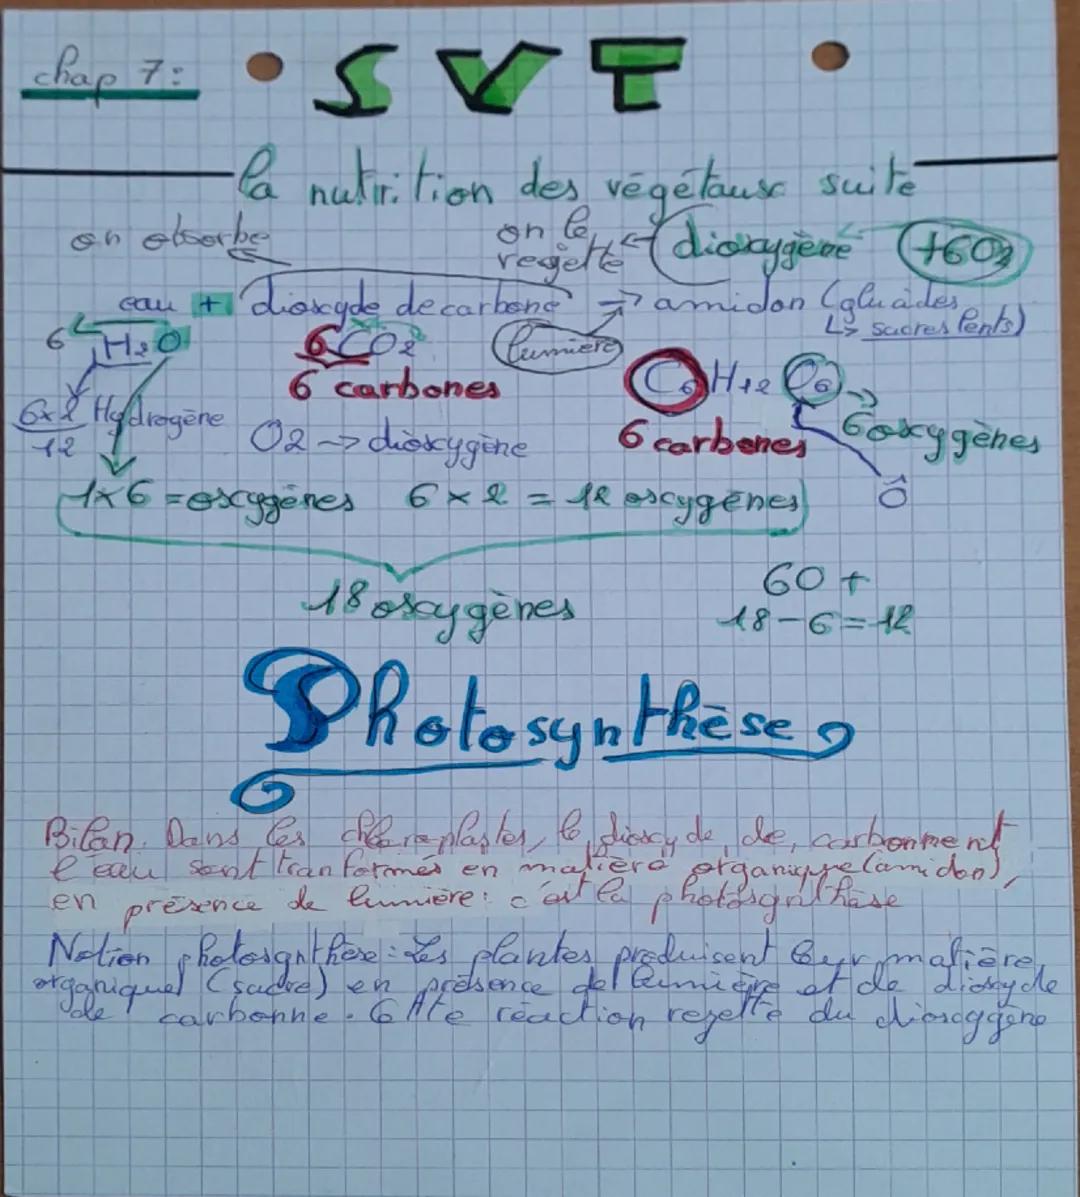 chap 7:
SVT
la nutrition des végétaux suite
on absorbe
on le
rejette
dioxygène
+6O2
eau + dioxyde de carbone -> amidon (glucides
↳ sucres lents)
6 H2O
6CO2
lumière
C6 H12 O6
6 carbones
6x2 Hydrogène
12
O2 -> dioxygène
6 carbones
6 oxygènes
Ô
1x6 = oxygènes 6 x 2 = 12 oxygènes
18 oxygènes
60 +
18-6=12
Photosynthèse
Bilan. Dans les chloroplastes, le dioxyde, de, carbonne nt
l'eau sont tranformés en matière organique (amidon),
en présence de lumière: c'est la photosynthèse
Notion photosynthèse: Les plantes produisent leur matière
organique (sucre) en présence de lumière et de dioxyde
de carbonne. Cette réaction rejette du dioxygène